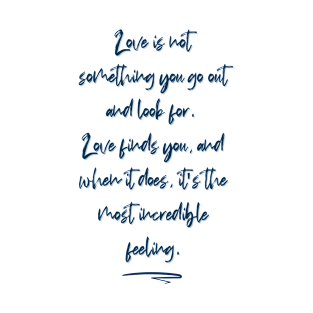 Love is not
something you go out
and look for.
Love finds you, and
when it does, it's the
most incredible
feeling.